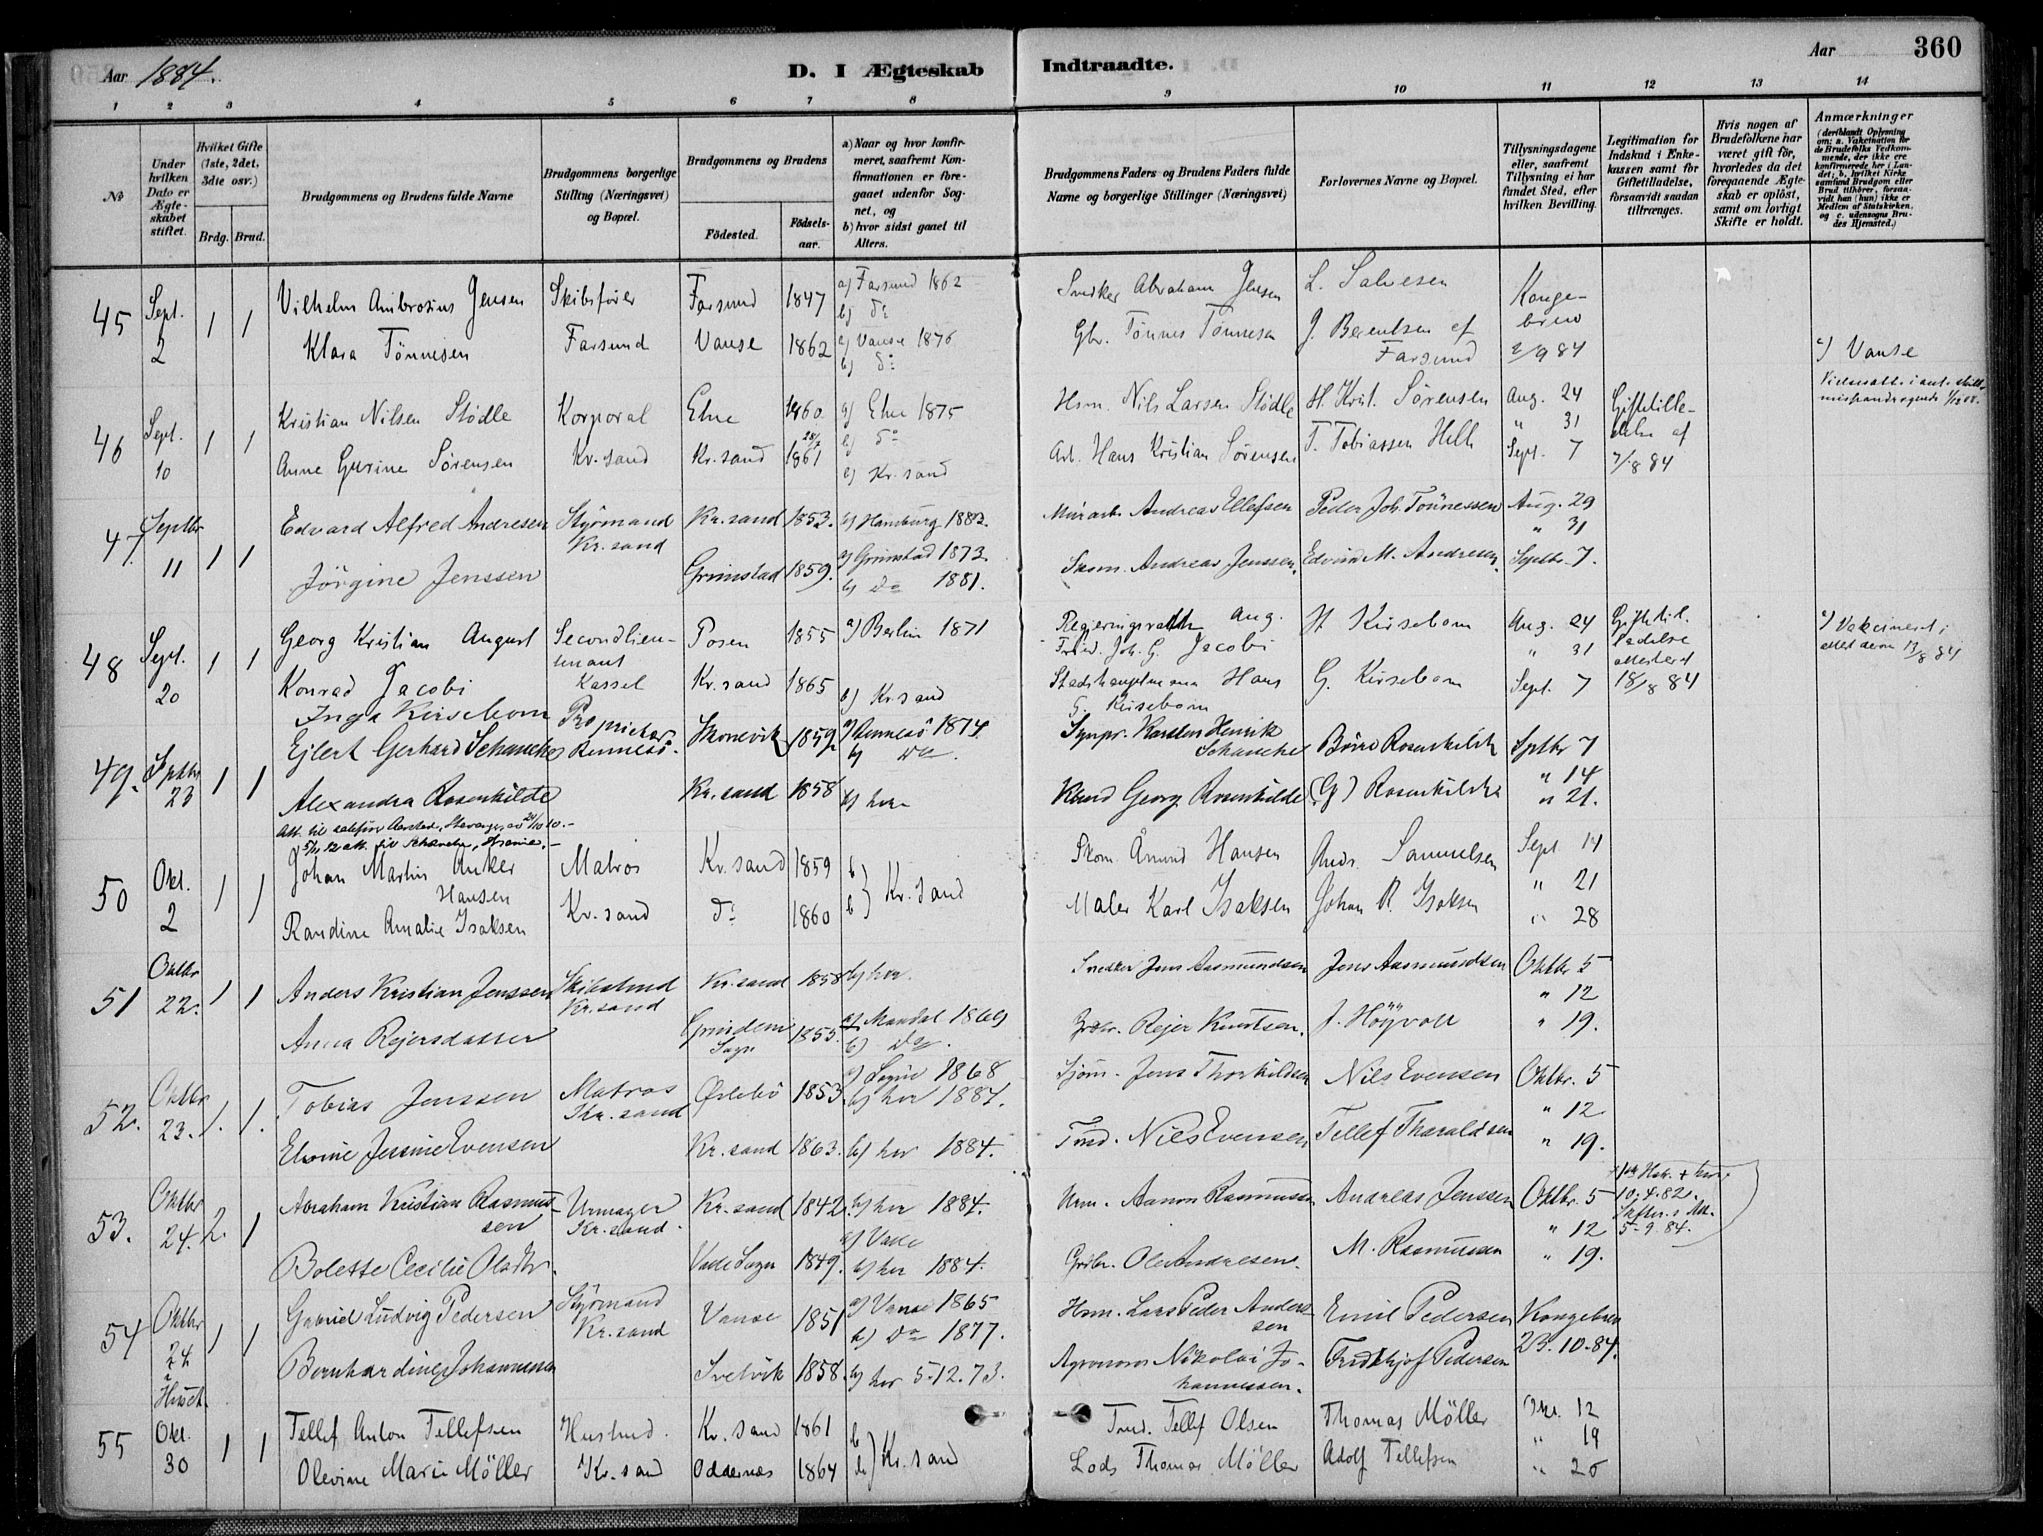 Aar 1884.
D. I Ægteskab
Indtraadte.
Aar
360
1 2 3 4 5 6 7 8 9 10 11 12 13 14
№
Under hvilken Dato er Ægteskabet stiftet.
Hvilket Gifte (1ste, 2det, 3die osv.)
Brdg. Brud.
Brudgommens og Brudens fulde Navne
Brudgommens borgerlige Stilling (Næringsvei) og Bopæl.
Brudgommens og Brudens
Födested.
Födselsaar.
a) Naar og hvor konfirmeret, saafremt Konfirmationen er foregaaet udenfor Sognet, og
b) hvor sidst gaaet til Alters.
Brudgommens Faders og Brudens Faders fulde Navne og borgerlige Stillinger (Næringsvei)
Forlovernes Navne og Bopæl.
Tillysningsdagene eller, saafremt Tillysning ei har fundet Sted, efter hvilken Bevilling.
Legitimation for Indskud i Enkekassen samt for Giftetilladelse, forsaavidt saadan tiltrænges.
Hvis nogen af Brudefolkene har været gift för, hvorledes da det foregaaende Ægteskab er oplöst, samt om lovligt Skifte er holdt.
Anmærkninger
(deriblandt Oplysning om: a. Vakcination for de Brudefolks Vedkommende, der ikke ere konfirmerede her i Landet; b. hvilket Kirkesamfund Brudgom eller Brud tilhörer, forsaavidt han (hun) ikke er Medlem af Statskirken, og c. udensogns Brudes Hjemsted.)
45 Sept. 2 1 1 Vilhelm Ambrosius Jensen Skibsfører Farsund 1847 a) Farsund 1862 b) do Snedker Abraham Jensen L. Salvesen Kongebrev
Klara Tönnesen Farsund Vanse 1862 a) Vanse 1876 b) do Gbr. Tönnes Tönnesen J. Berentsen af Farsund 2/9 84 c) Vanse
46 Sept. 10 1 1 Kristian Nilsen Stödle Korporal Etne 1860 a) Etne 1875 b) do Hsm. Nils Larsen Stödle H. Krist. Sörensen Aug. 24 " 31 Giftetilladelse af 7/8 84
Anne Gurine Sörensen Kr.sand Kr.sand 1861 b) Kr.sand Arb. Hans Kristian Sörensen T. Tobiassen Sept. 7
47. Septbr 11 1 1 Edvard Alfred Andresen Styrmand Kr.sand Kr.sand 1853. b) Hamburg 1882. Andreas Ellefsen Peder Joh. Tönnessen Aug. 29 " 31
Jörgine Jenssen Grimstad 1859. a) Grimstad 1873. b) Do 1881. Skom. Andreas Jenssen. Edvard M. Andresen. Septbr 7.
48 Sept. 20 1 1 Georg Kristian August Konrad Jacobi Secondlieutenant Kassel Posen 1855 a) Berlin 1871 Regjeringsrath Aug. Fried. Joh. G. Jacobi H Kirsebom Aug. 24 " 31 Giftetilladelse attesteret 18/8 84 a) Vakcineret i
Inga Kirsebom Kr.sand 1865 b) Kr.sand Stadshauptmann Hans G. Kirsebom G. Kirsebom Sept. 7
49. Septbr 23 1 1 Ejlert Gerhard Schanche Proprietær Rennesö. Skonevik 1859. a) Rennesö 1874. b) Do. Sgnpr. Karsten Henrik Schanche Börre Rosenkilde Septbr 7
Alexandra Rosenkilde Kr.sand 1858 b) her Georg Rosenkilde (G) Rosenkilde " 14 " 21.
50 Okt. 2 1 1 Johan Martin Anker Hansen Matros Kr.sand 1859 b Skom. Åmund Hansen Andr. Samuelsen Sept 14
Randine Amalie Isaksen Kr.sand do 1860 b } Kr.sand Maler Karl Isaksen Johan R. Isaksen " 21 " 28
51 Oktbr 22. 1 1 Anders Kristian Jenssen Kr.sand Kr.sand 1858 b) her. Snedker Jens Aasmundsen Jens Aasmundsen Oktbr 5 " 12
Anna Rejersdatter 1855. a) Mandal 1869 b) Do. Rejer Knutsen. " 19.
52. Oktbr 23. 1. 1. Tobias Jenssen Matros Kr.sand Övlebö 1853. a) Sogne 1868 b) her 1884. Sjöm. Jens Thorkildsen Nils Evensen Oktbr. 5 " 12
Elvine Jensine Evensen Kr.sand 1863. b) her 1884. Tmd. Nils Evensen Tellef Tharaldsen " 19.
53. Oktbr 24. 2. 1 Abraham Kristian Rasmussen Urmager Kr.sand. Kr.sand 1842. b) her 1884. Urm. Aanon Rasmussen Andreas Jenssen Oktbr. 5 " 12 10.4.82. 5-9.84.
Bolette Cecilie Olsdtr. 1849. b) her 1884. Ole Andresen. M. Rasmussen " 19.
54 Oktbr 24 1 1 Gabriel Ludvig Pedersen Styrmand Kr.sand Vanse 1851 a) Vanse 1865 b) Do 1877. Hsm. Lars Peder Anderssen Emil Pedersen Kongebrev
Bernhardine Johannessen Svelvik 1858. b) her 5-12.73. Agronom Nikolai Johannessen. Fridthjof Pedersen 23.10-84.
55 Okt. 30 1 1 Tellef Anton Tellefsen Kr.sand 1861 b Tmd. Tellef Olsen Thomas Möller Okt. 12 " 19
Olevine Marie Möller Kr.sand Oddernæs 1864 b } Kr.sand Lods Thomas Möller Adolf Tellefsen " 26